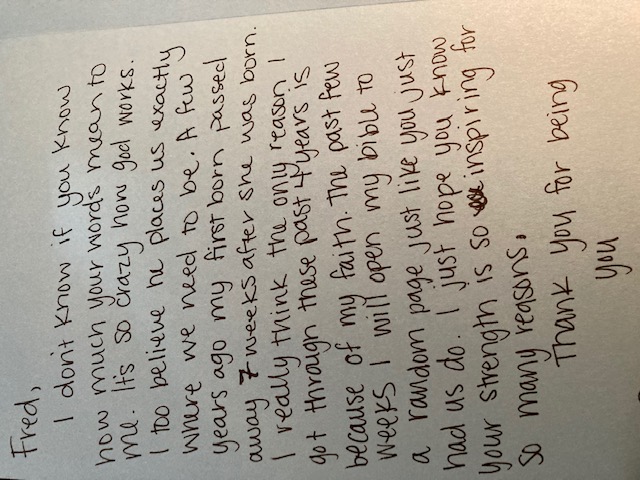 Fred,
I don't know if you know
how much your words mean to
me. Its so crazy how god works.
I too believe he places us exactly
where we need to be. A few
years ago my first born passed
away 7 weeks after she was born.
I really think the only reason I
got through these past 4 years is
because of my faith. The past few
weeks I will open my bible to
a random page just like you just
had us do. I just hope you know
your strength is so inspiring for
so many reasons.
Thank you for being
you